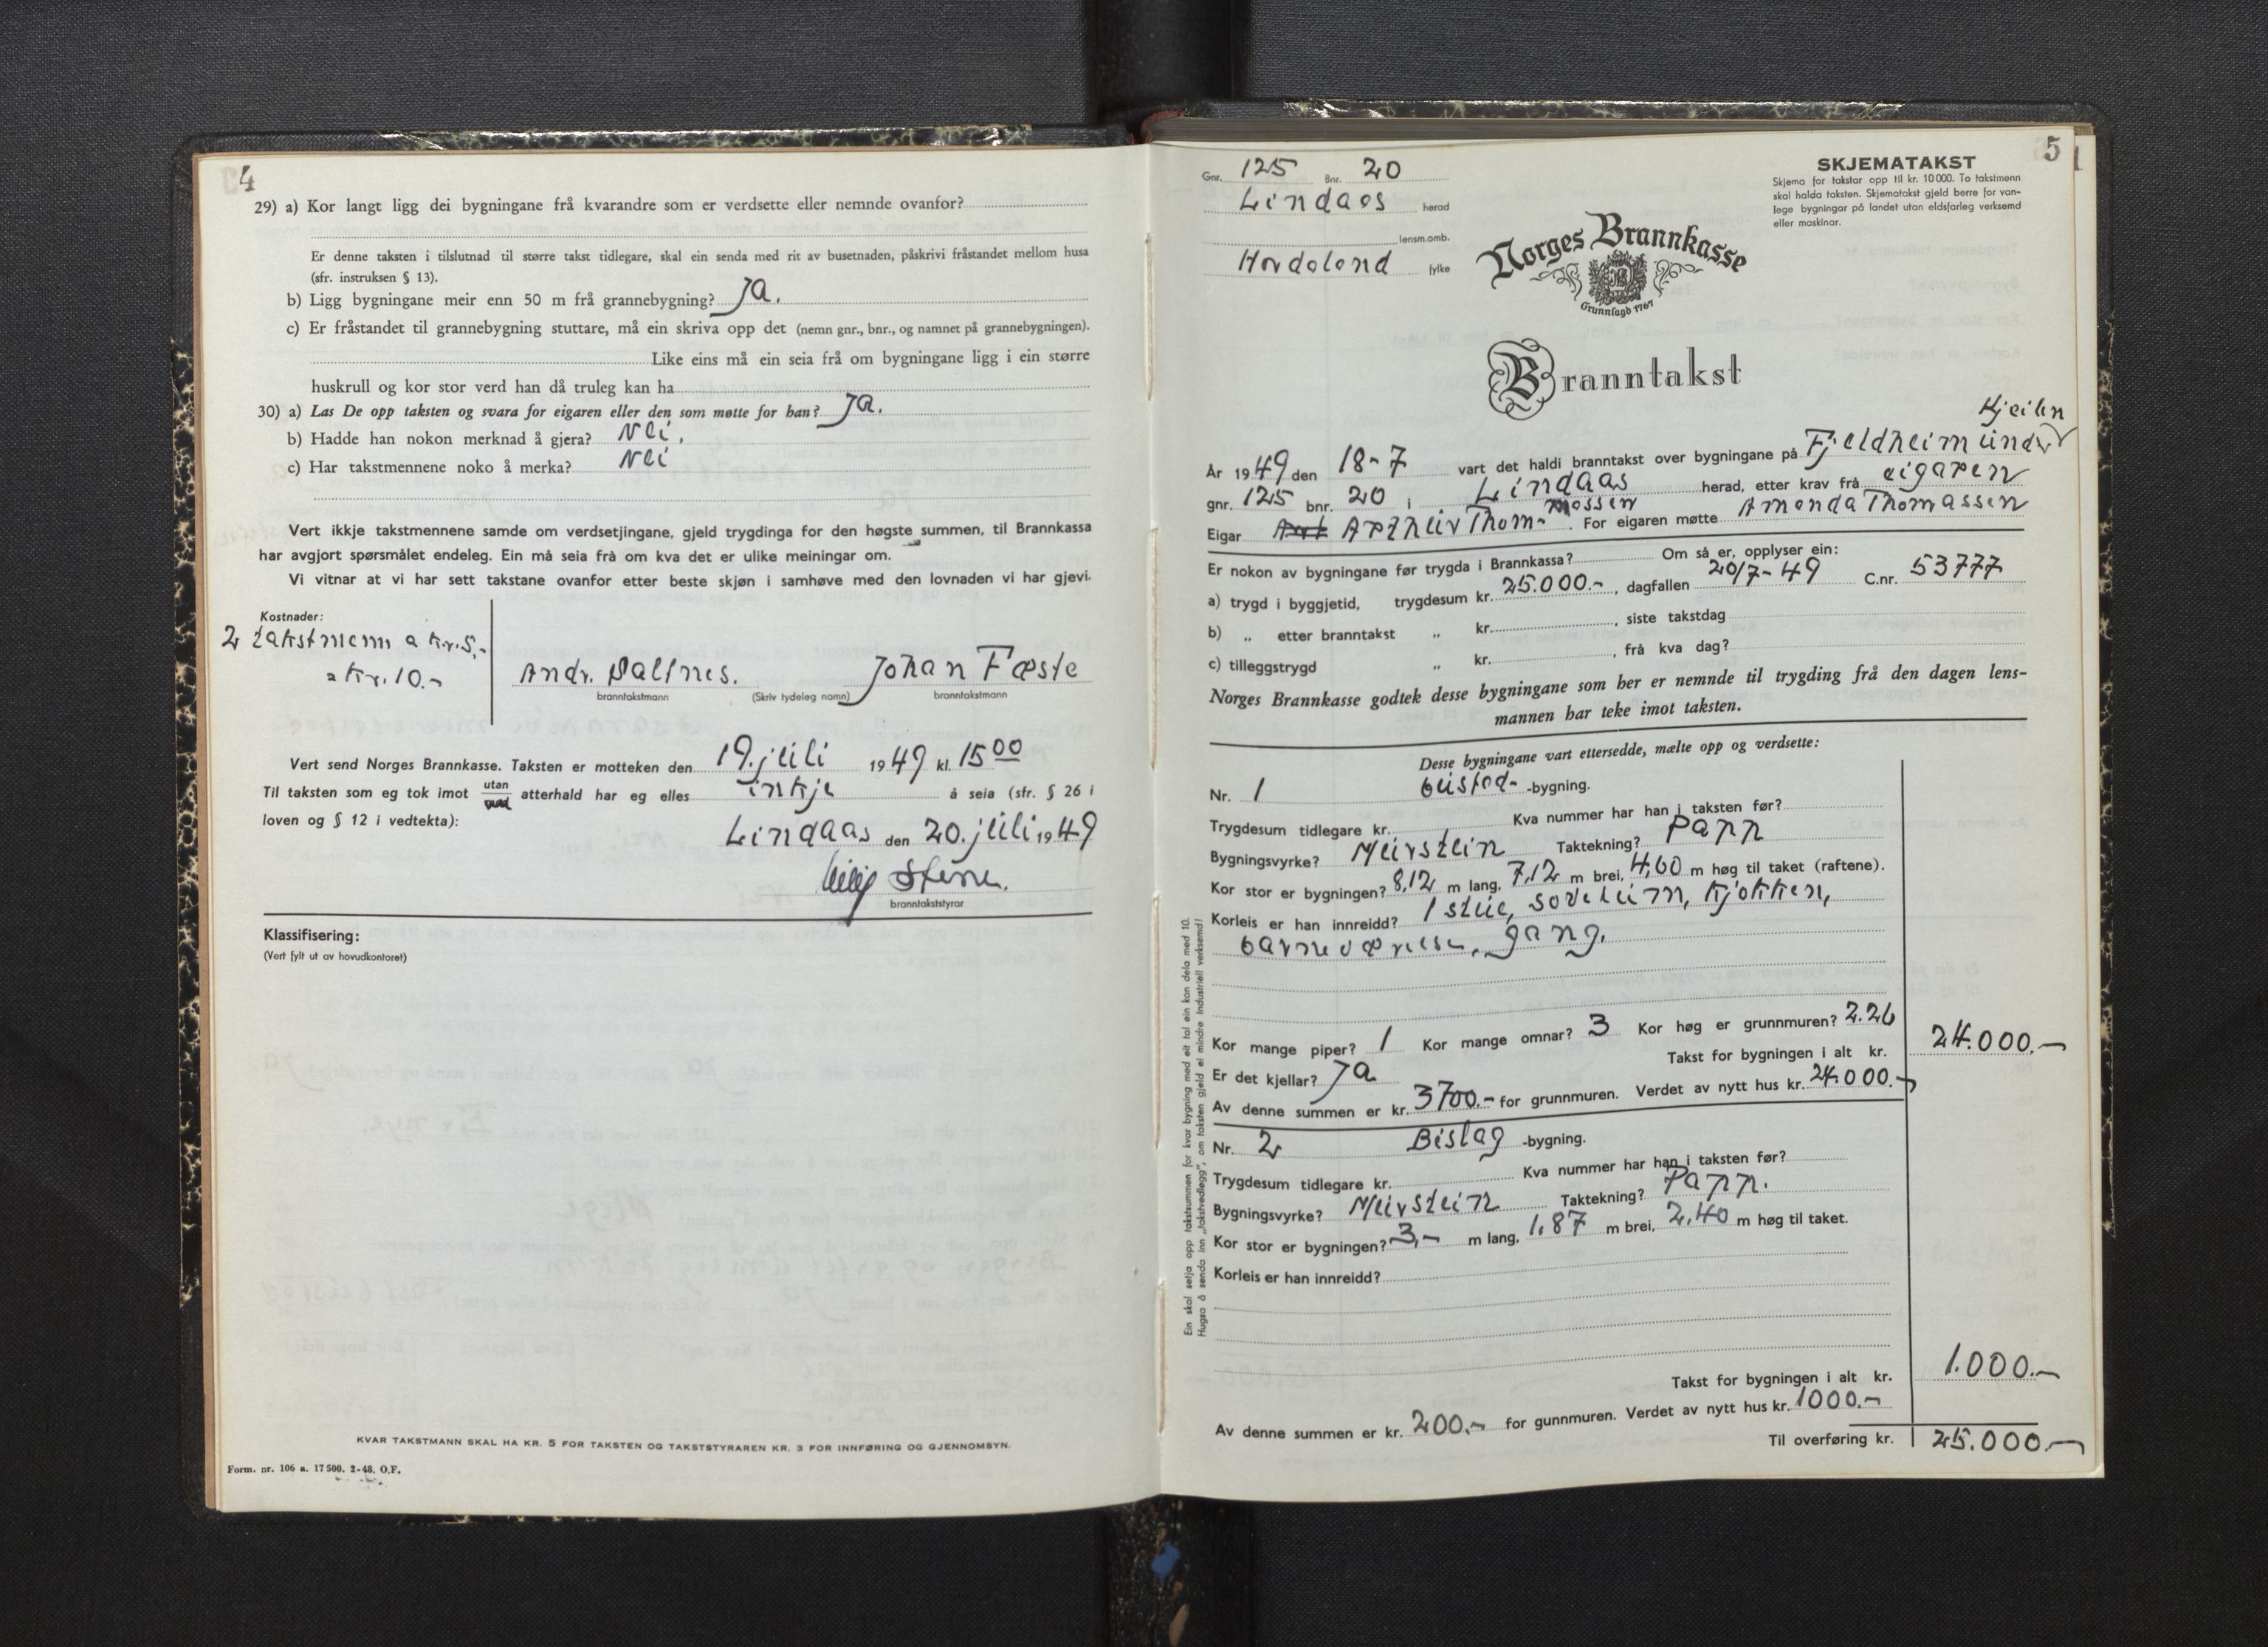 4
29) a) Kor langt ligg dei bygningane frå kvarandre som er verdsette eller nemnde ovanfor?
Er denne taksten i tilslutnad til større takst tidlegare, skal ein senda med rit av busetnaden, påskrivi fråstandet mellom husa
(sfr. instruksen § 13).
b) Ligg bygningane meir enn 50 m frå grannebygning? Ja.
c) Er fråstandet til grannebygning stuttare, må ein skriva opp det (nemn gnr., bnr., og namnet på grannebygningen).
Like eins må ein seia frå om bygningane ligg i ein større
huskrull og kor stor verd han då truleg kan ha
30) a) Las De opp taksten og svara for eigaren eller den som møtte for han? Ja.
b) Hadde han nokon merknad å gjera? Nei.
c) Har takstmennene noko å merka? Nei
Vert ikkje takstmennene samde om verdsetjingane, gjeld trygdinga for den høgste summen, til Brannkassa
har avgjort spørsmålet endeleg. Ein må seia frå om kva det er ulike meiningar om.
Vi vitnar at vi har sett takstane ovanfor etter beste skjøn i samhøve med den lovnaden vi har gjevi.
Kostnader:
2 takstmenn a kr. 5,-
= kr. 10.-
Andr. Saltnes. Johan Fæste
branntakstmann (Skriv tydeleg namn) branntakstmann
Vert send Norges Brannkasse. Taksten er motteken den 19. juli 1949 kl. 15 00
Til taksten som eg tok imot utan atterhald har eg elles inkje å seia (sfr. § 26 i
loven og § 12 i vedtekta):
Lindaas den 20. juli 1949
branntakststyrar
Klassifisering:
(Vert fylt ut av hovudkontoret)
KVAR TAKSTMANN SKAL HA KR. 5 FOR TAKSTEN OG TAKSTSTYRAREN KR. 3 FOR INNFØRING OG GJENNOMSYN.
Form. nr. 106 a. 17 500. 2-48. O.F.
5
Gnr. 125 Bnr. 20
Lindaas herad
lensm.omb.
Hordaland fylke
SKJEMATAKST
Skjema for takstar opp til kr. 10 000. To takstmenn
skal halda taksten. Skjematakst gjeld berre for van-
lege bygningar på landet utan eldsfarleg verksemd
eller maskinar.
Norges Brannkasse
Grunnlagd 1767
Branntakst
Kjeilen
År 1949 den 18-7 vart det haldi branntakst over bygningane på Fjeldheim under
gnr. 125 bnr. 20 i Lindaas herad, etter krav frå eigaren
Eigar Arthur Thom-massen. For eigaren møtte Amanda Thomassen
Er nokon av bygningane før trygda i Brannkassa? Om så er, opplyser ein:
a) trygd i byggjetid, trygdesum kr. 25.000.-, dagfallen 20/7-49 C.nr. 53777
b) „ etter branntakst „ kr. , siste takstdag
c) tilleggstrygd „ kr. , frå kva dag?
Norges Brannkasse godtek desse bygningane som her er nemnde til trygding frå den dagen lens-
mannen har teke imot taksten.
Desse bygningane vart ettersedde, mælte opp og verdsette:
Nr. 1 Bustad- -bygning.
Trygdesum tidlegare kr. Kva nummer har han i taksten før?
Bygningsvyrke? Murstein Taktekning? Papp
Kor stor er bygningen? 8,12 m lang, 7,12 m brei, 4,60 m høg til taket (raftene).
Korleis er han innreidd? 1 stue, soverum, kjøkken,
barneværelse, gang.
Kor mange piper? 1 Kor mange omnar? 3 Kor høg er grunnmuren? 2.26
Er det kjellar? Ja Takst for bygningen i alt kr. 24.000.-
Av denne summen er kr. 3700.- for grunnmuren. Verdet av nytt hus kr. 24.000.-
Nr. 2 Bislag -bygning.
Trygdesum tidlegare kr. Kva nummer har han i taksten før?
Bygningsvyrke? Murstein Taktekning? Papp.
Kor stor er bygningen? 3,- m lang, 1,87 m brei, 2,40 m høg til taket.
Korleis er han innreidd?
Takst for bygningen i alt kr. 1.000.-
Av denne summen er kr. 200.- for gunnmuren. Verdet av nytt hus kr. 1000.-
Til overføring kr. 25.000.-
Ein skal setja opp takstsummen for kvar bygning med eit tal ein kan dela med 10.
Hugsa å senda inn „takstvedlegg", om taksten gjeld ei mindre industriell verksemd!